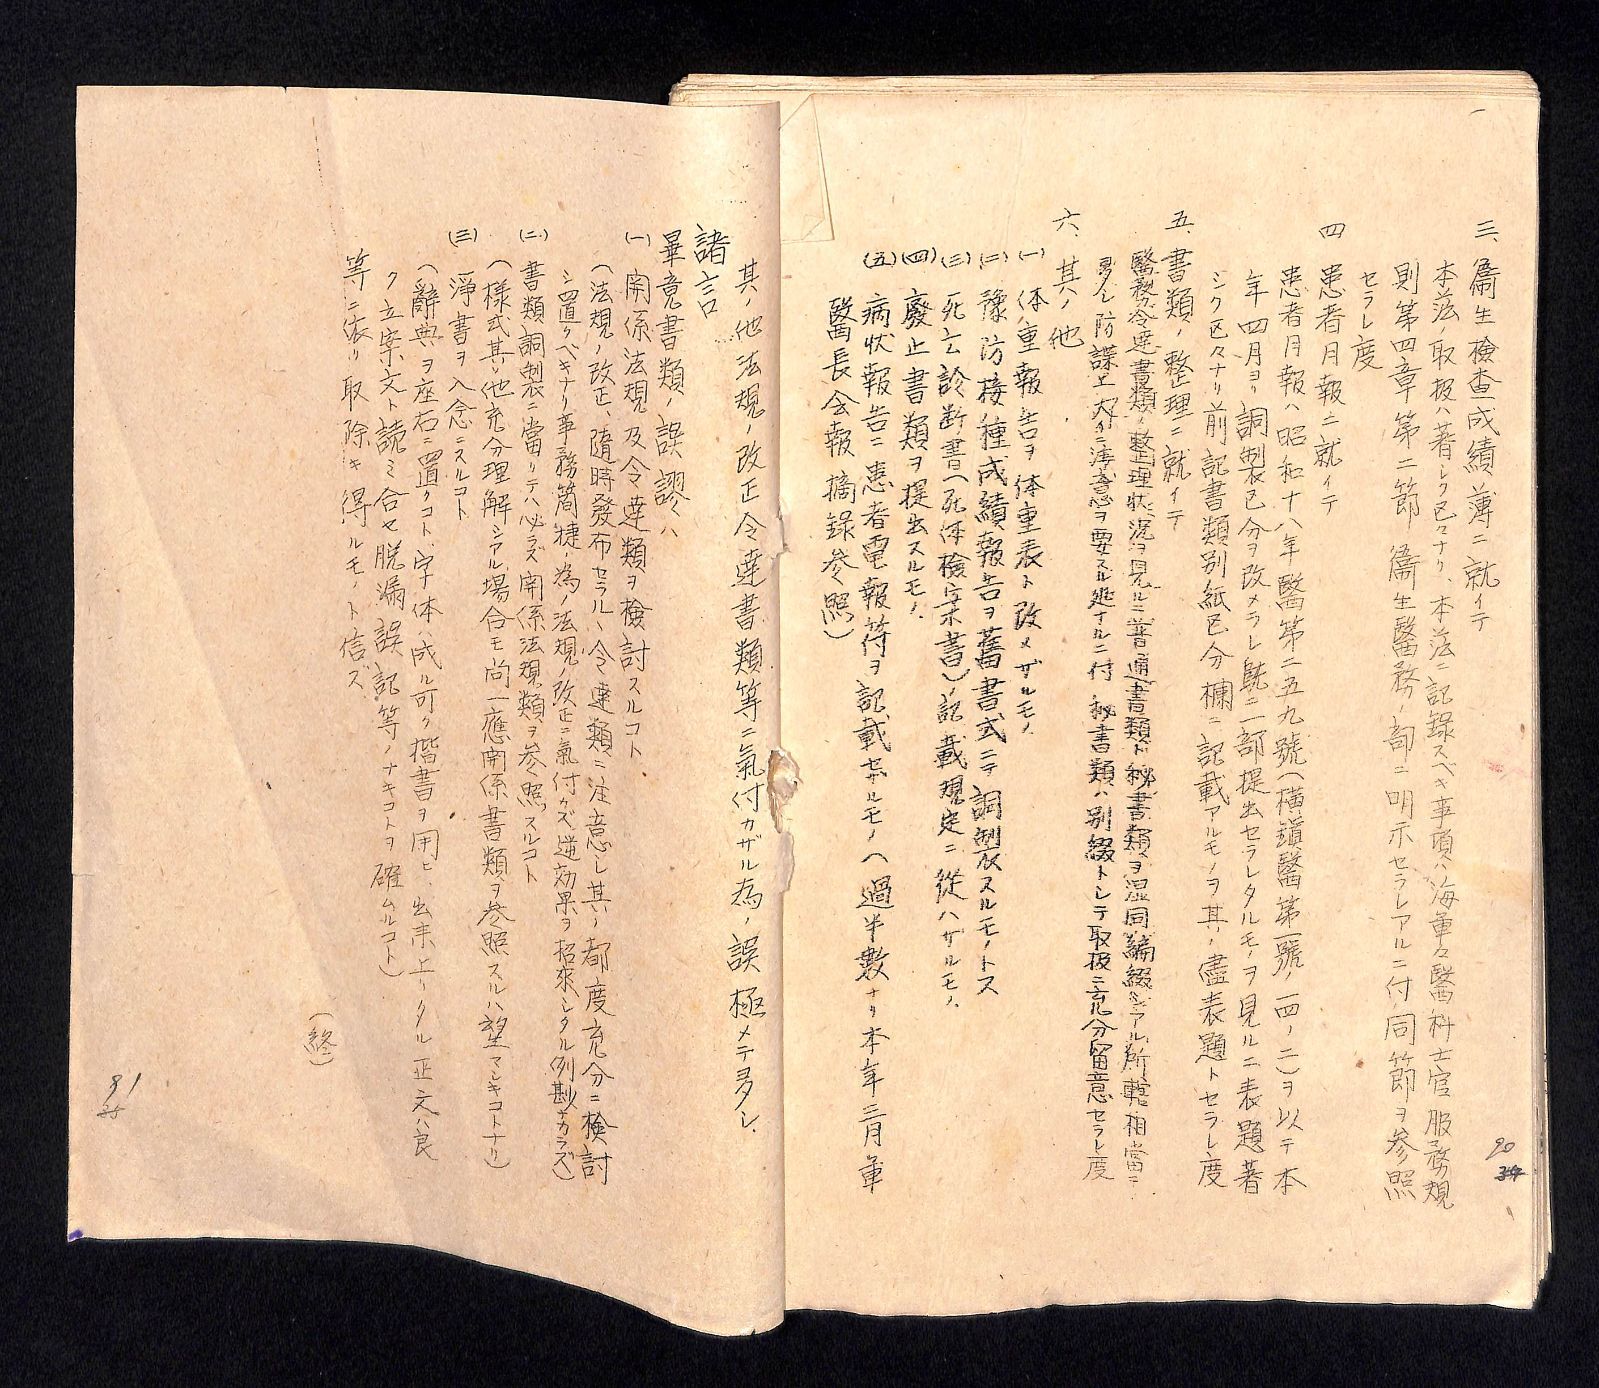 三、衞生檢査成績簿ニ就イテ
本法ノ取扱ハ著シク区々ナリ、本法ニ記録スベキ事項ハ海軍々醫科士官服務規
則第四章第二節 衞生醫務ノ部ニ明示セラレアルニ付同節ヲ参照
セラレ度
四 患者月報ニ就イテ
患者月報ハ昭和十八年醫第二五九號(横鎮醫第一號ノ一四ノ二)ヲ以テ本
年四月ヨリ調製区分ヲ改メラレ既ニ一部提出セラレタルモノヲ見ルニ表題著
シク区々ナリ前記書類別紙区分欄ニ記載アルモノヲ其ノ儘表題トセラレ度
五、書類ノ整理ニ就イテ
醫務令達書類ノ整理状況ヲ見ルニ普通書類ト秘書類ヲ混同編綴シアル所轄相當ニ
多シ防諜上大イニ注意ヲ要スル処ナルニ付 秘書類ハ別綴トシテ取扱ニ充分留意セラレ度
六、其ノ他
(一) 体重報告ヲ体重表ト改メザルモノ、
(二) 豫防接種成績報告ヲ舊書式ニテ調製スルモノトス
(三) 死亡診断書(死体検案書)ノ記載規定ニ從ハザルモノ、
(四) 廢止書類ヲ提出スルモノ、
(五) 病状報告ニ患者電報符ヲ記載セザルモノ(過半數ナリ本年三月軍
醫長会報摘録参照)
其ノ他法規ノ改正令達書類等ニ氣付カザル為ノ誤極メテ多シ、
諸言
畢竟書類ノ誤謬ハ
(一) 関係法規及令達類ヲ検討スルコト
(法規ノ改正、随時發布セラルヽ令達類ニ注意シ其ノ都度充分ニ検討
シ置クベキナリ事務簡捷ノ為ノ法規ノ改正ニ氣付カズ逆効果ヲ招來シタル例尠ナカラズ)
(二) 書類調製ニ當リテハ必ラズ関係法規類ヲ参照スルコト
(様式其ノ他充分理解シアル場合モ尚一應関係書類ヲ参照スルハ望マシキコトナリ)
(三) 淨書ヲ入念ニスルコト
(辭典ヲ座右ニ置クコト、字体ハ成ル可ク楷書ヲ用ヒ、出来上リタル正文ハ良
ク立案文ト読ミ合セ脱漏誤記等ノナキコトヲ確ムルコト)
等ニ依リ取除キ得ルモノト信ズ
(終)
90
91